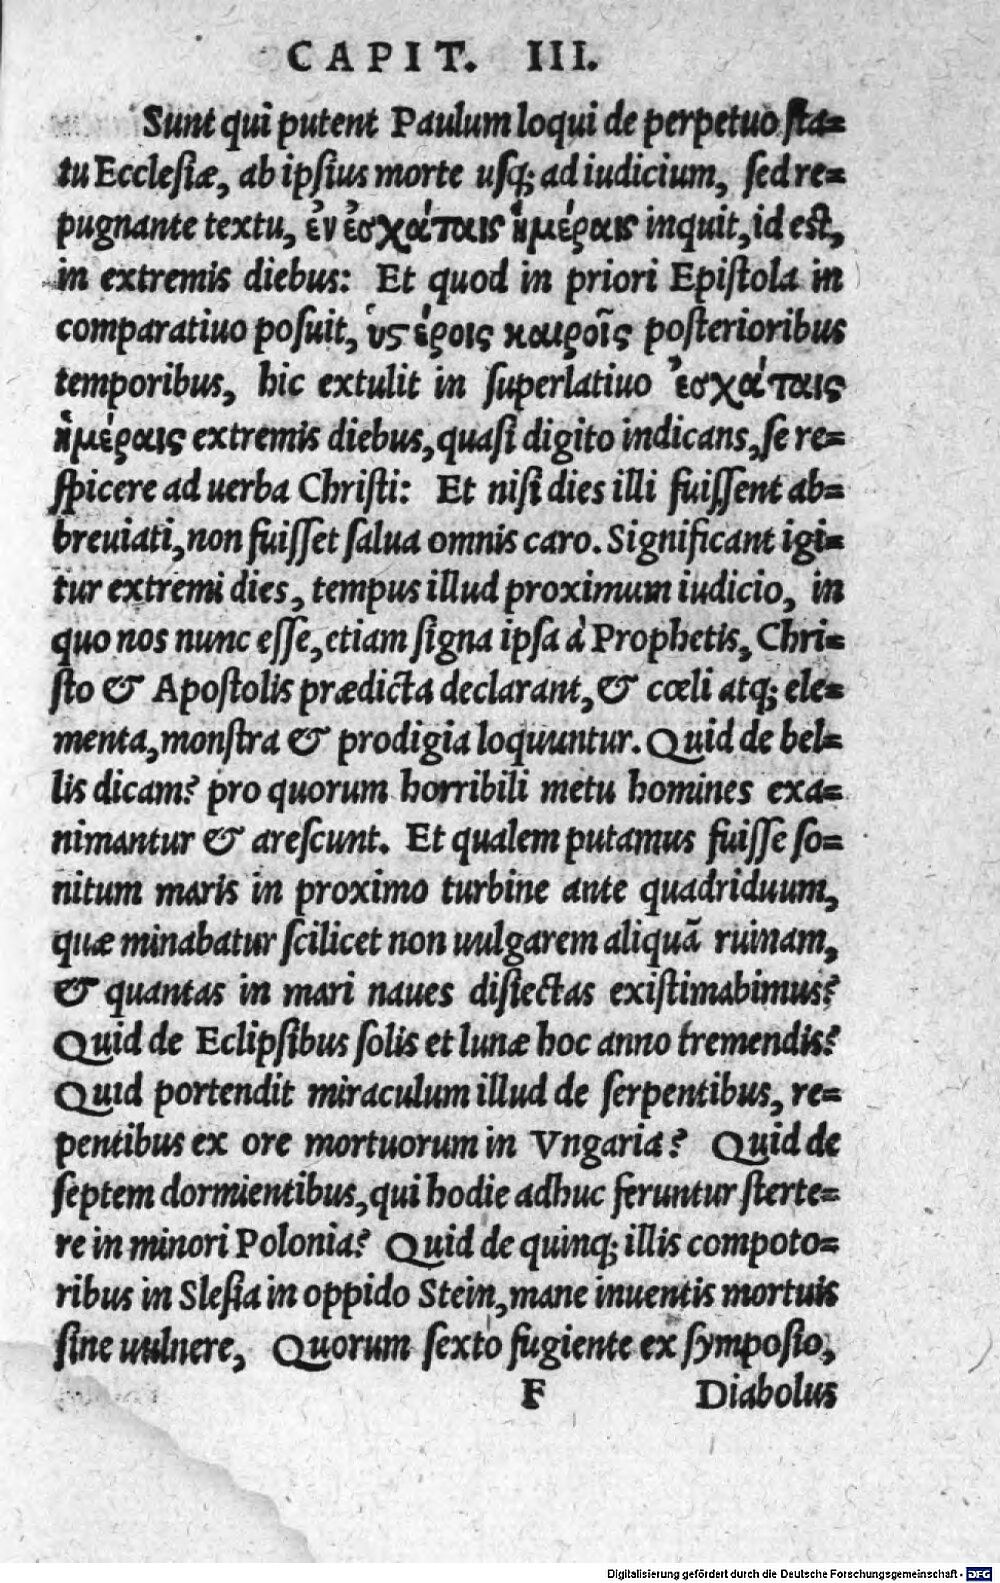 CAPIT. III.
Sunt qui putent Paulum loqui de perpetuo ſta=
tu Eccleſiæ, ab ipſius morte uſq; ad iudicium, ſed re=
pugnante textu, ἐν ἐσχάταις ἡμέραις inquit, id eſt,
in extremis diebus: Et quod in priori Epiſtola in
comparatiuo poſuit, ὑςέροις καιροῖς poſterioribus
temporibus, hic extulit in ſuperlatiuo ἐσχάταις
ἡμέραις extremis diebus, quaſi digito indicans, ſe re=
ſpicere ad uerba Chriſti: Et niſi dies illi fuiſſent ab=
breuiati, non fuiſſet ſalua omnis caro. Significant igi=
tur extremi dies, tempus illud proximum iudicio, in
quo nos nunc eſſe, etiam ſigna ipſa à Prophetis, Chri=
ſto & Apoſtolis prædicta declarant, & cœli atq; ele=
menta, monſtra & prodigia loquuntur. Quid de bel=
lis dicam? pro quorum horribili metu homines exa=
nimantur & areſcunt. Et qualem putamus fuiſſe ſo=
nitum maris in proximo turbine ante quadriduum,
quæ minabatur ſcilicet non uulgarem aliquã ruinam,
& quantas in mari naues diſiectas exiſtimabimus?
Quid de Eclipſibus ſolis et lunæ hoc anno tremendis?
Quid portendit miraculum illud de ſerpentibus, re=
pentibus ex ore mortuorum in Vngaria? Quid de
ſeptem dormientibus, qui hodie adhuc feruntur ſterte=
re in minori Polonia? Quid de quinq; illis compoto=
ribus in Sleſia in oppido Stein, mane inuentis mortuis
ſine uulnere, Quorum ſexto fugiente ex ſympoſio,
F Diabolus
Digitalisierung gefördert durch die Deutsche Forschungsgemeinschaft - DFG